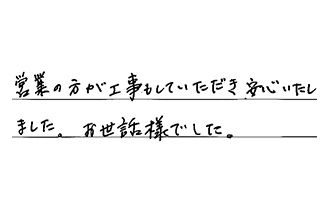 営業の方が工事もしていただき安心いたし
ました。お世話様でした。